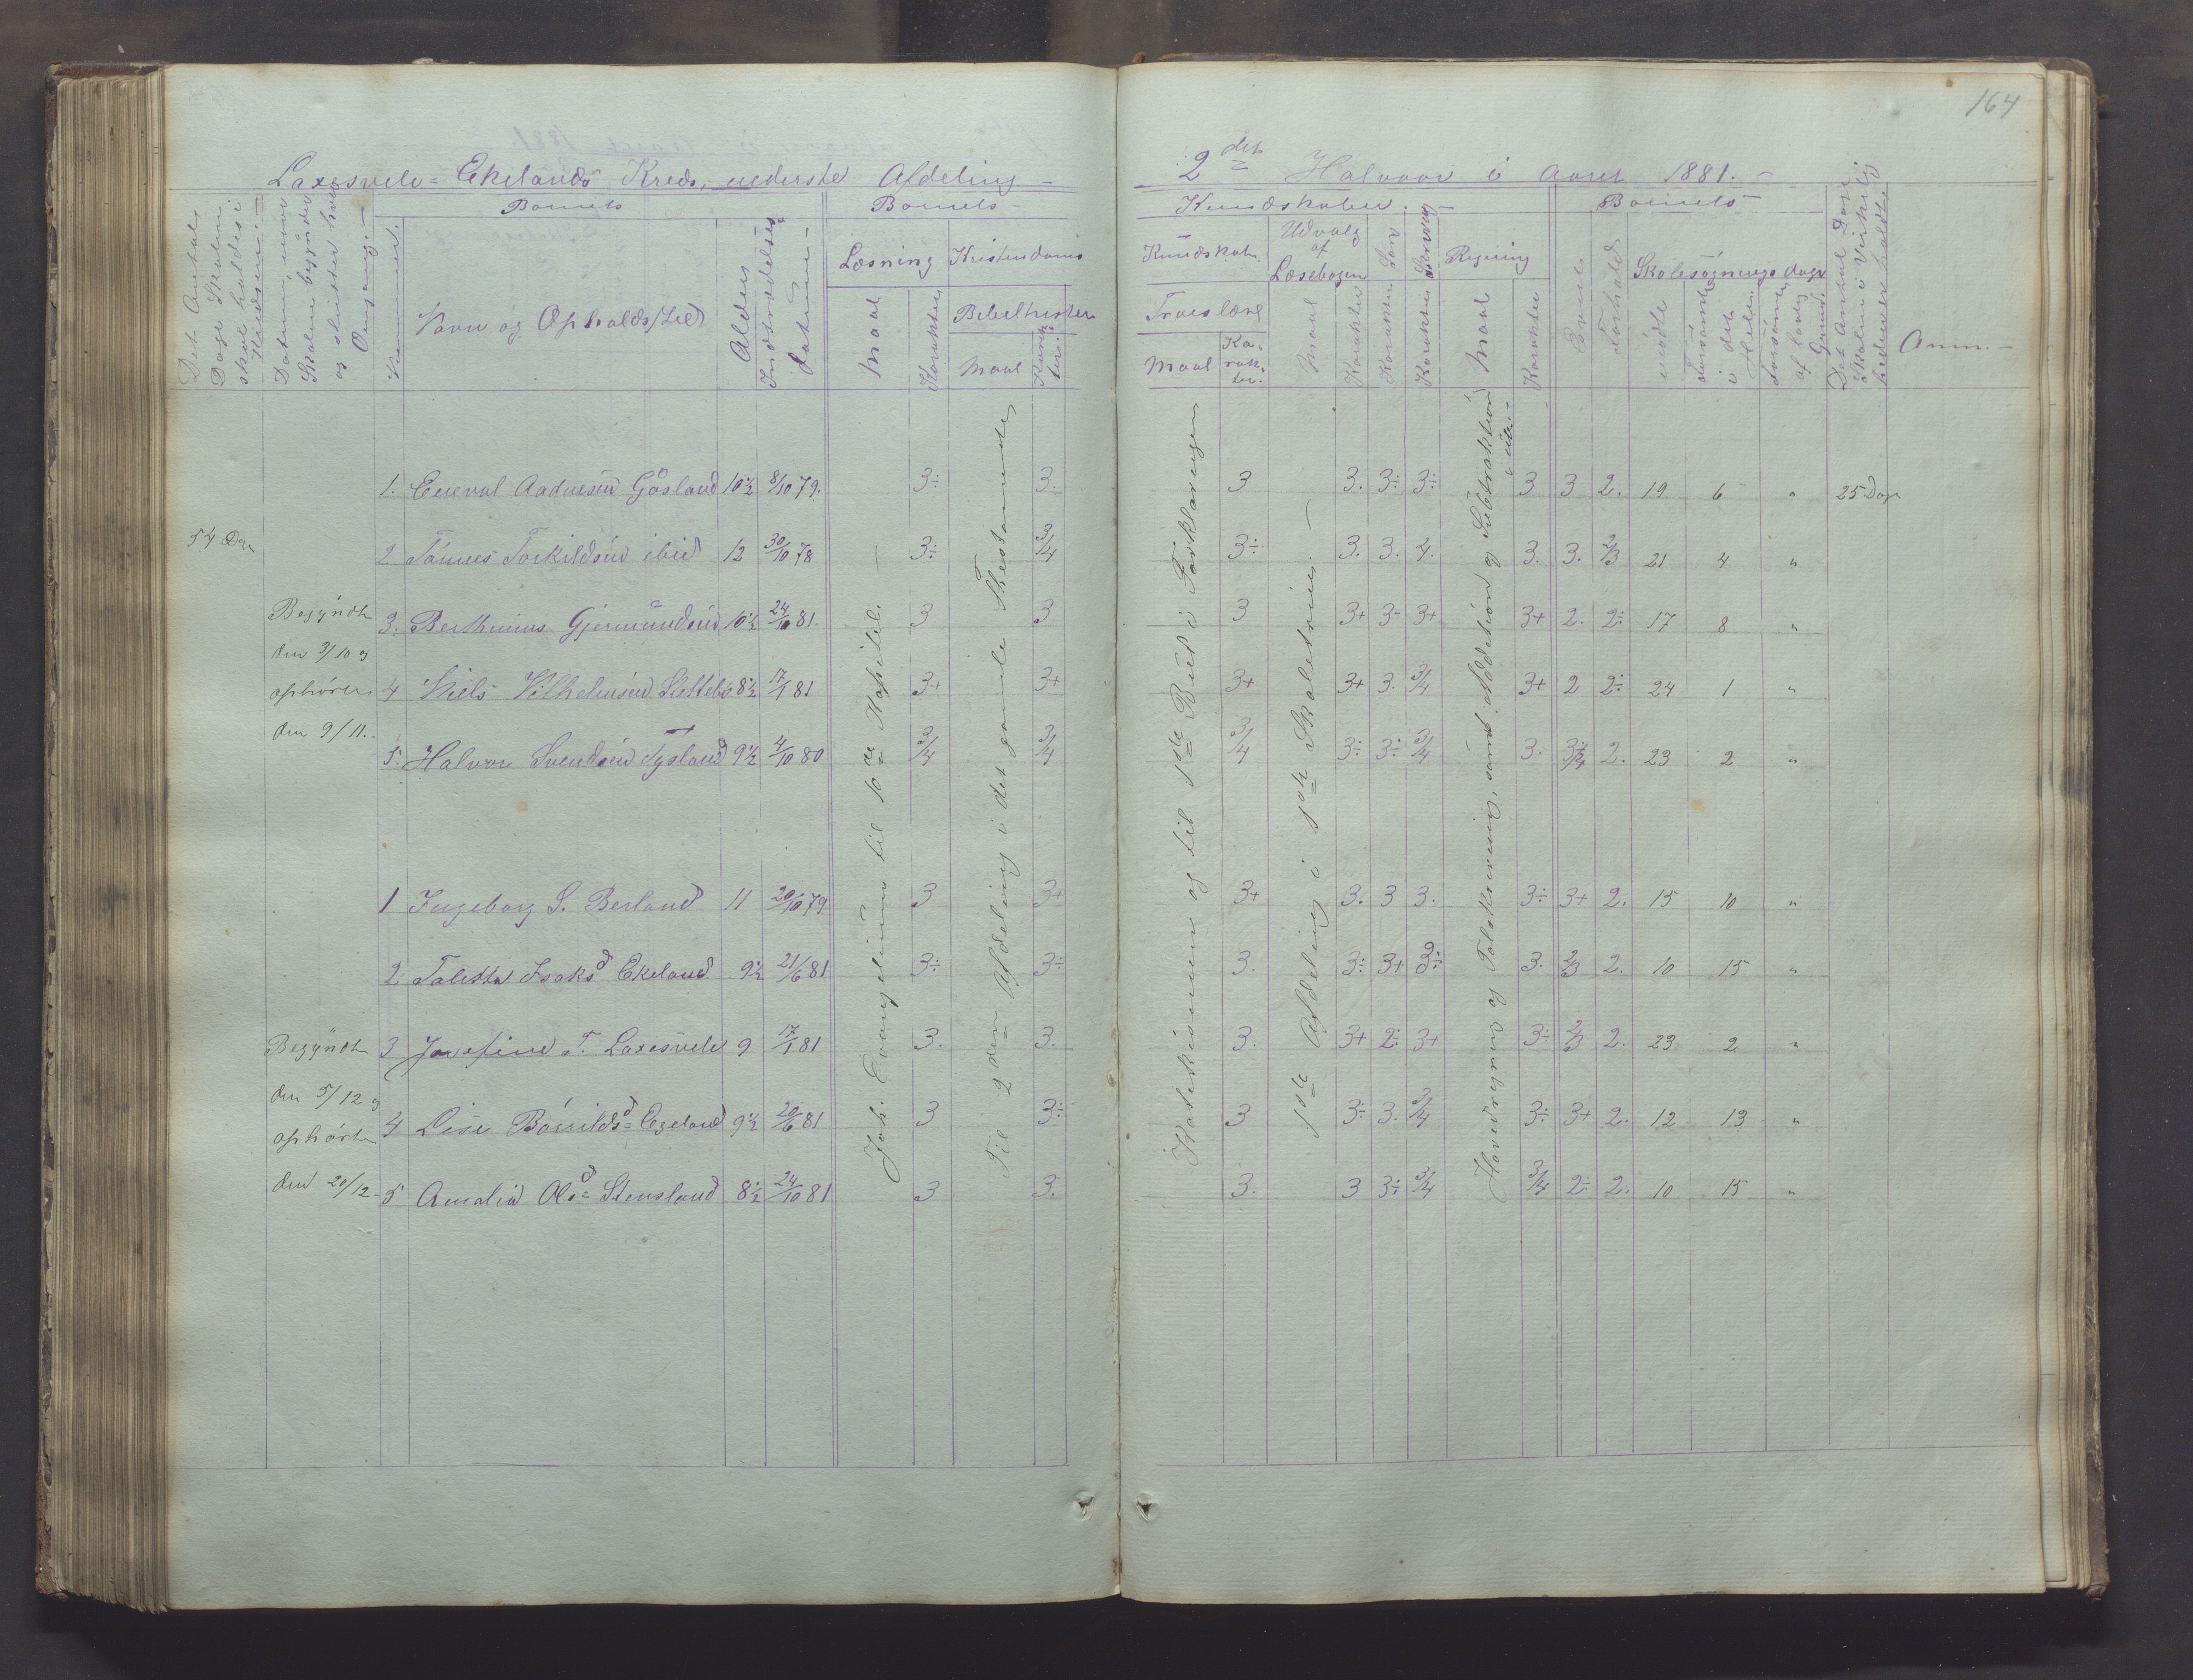 164
Laxesvele = Ekelands Kreds, nederste Afdeling -
2det Halvaar i Aaret 1881. -
Det Antal Dage Skolen skal holdes i Kredsen. -
Datum, naar Skolen begynder og slutter hver Omgang. -
Barnets
Nummer.
Navn og Opholdssted
Alder
Indtrædelses-Datum -
Barnets -
Læsning
Maal
Karakter
Kristendoms
Bibelhistorie
Maal
Karakter.
Kundskaber. -
Kundskab.
Troeslære
Maal
Ka-rak-ter.
Udvalg af Læsebogen
Maal
Karakter
Karakter
Karakter
Regning
Maal
Karakter
Barnets -
Evner
Forhold
Skolesøgnings dage
mødte
forsømte i det Hele
forsømte af lovlig Grund.
Det Antal Dage Skolen i Virkeligheden er holdt.
Anm. -
1. Aadnesen Gåsland 10½ 8/10 79. 3÷ 3. 3 3. 3÷ 3÷ 3 3 2. 19 6 " 25 Dage
54 Dage
2 Tønnes Torkildsen ibid 12 30/10 78 3÷ 3/4 3÷ 3. 3. 4. 3. 3. 2/3 21 4 "
Begyndte
3. Berthinius Gjermundsen 10½ 24/10 81. 3 3 3 3+ 3- 3+ 3+ 2. 2÷ 17 8 "
den 3/10 og
ophørte
4 Niels Vilhelmsen Slettebø 8½ 17/1 81 3+ 3+ 3+ 3+ 3. 3/4 3+ 2 2÷ 24 1 "
den 9/11. -
5. Halvor Svendsen Tysland 9½ 4/10 80 3/4 3/4 3/4 3÷ 3÷ 3/4 3. 3/4 2. 23 2 "
1 Ingeborg S. Berland 11 20/10 79 3 3+ 3+ 3. 3 3. 3÷ 3+ 2. 15 10 "
2 Taletta Isaksd Ekeland 9½ 21/6 81 3÷ 3÷ 3. 3÷ 3+ 3÷ 3. 2/3 2. 10 15 "
Begyndte
3 Josefine T. Laxesvele 9 17/1 81 3. 3. 3. 3+ 2÷ 3+ 3÷ 2/3 2. 23 2 "
den 5/12 og
ophørte
4 Lise Bårildsd = Egeland 9½ 20/6 81 3 3÷ 3 3÷ 3. 3/4 3÷ 3+ 2. 12 13 "
den 20/12 -
5 Amalia Olsd = Stensland 8½ 24/10 81 3 3. 3. 3 3÷ 3/4 3/4 2÷ 2. 10 15 "
Joh. Evangelium til 10de Kapitel. -
Til 2den Afdeling i det gamle Thestamente
Katekismen og til 1ste Bud i Forklaringen
1ste Afdeling i 1ste Skoletrin. -
Hovedregning og Talskrivning, samt Addition og Subtraktion